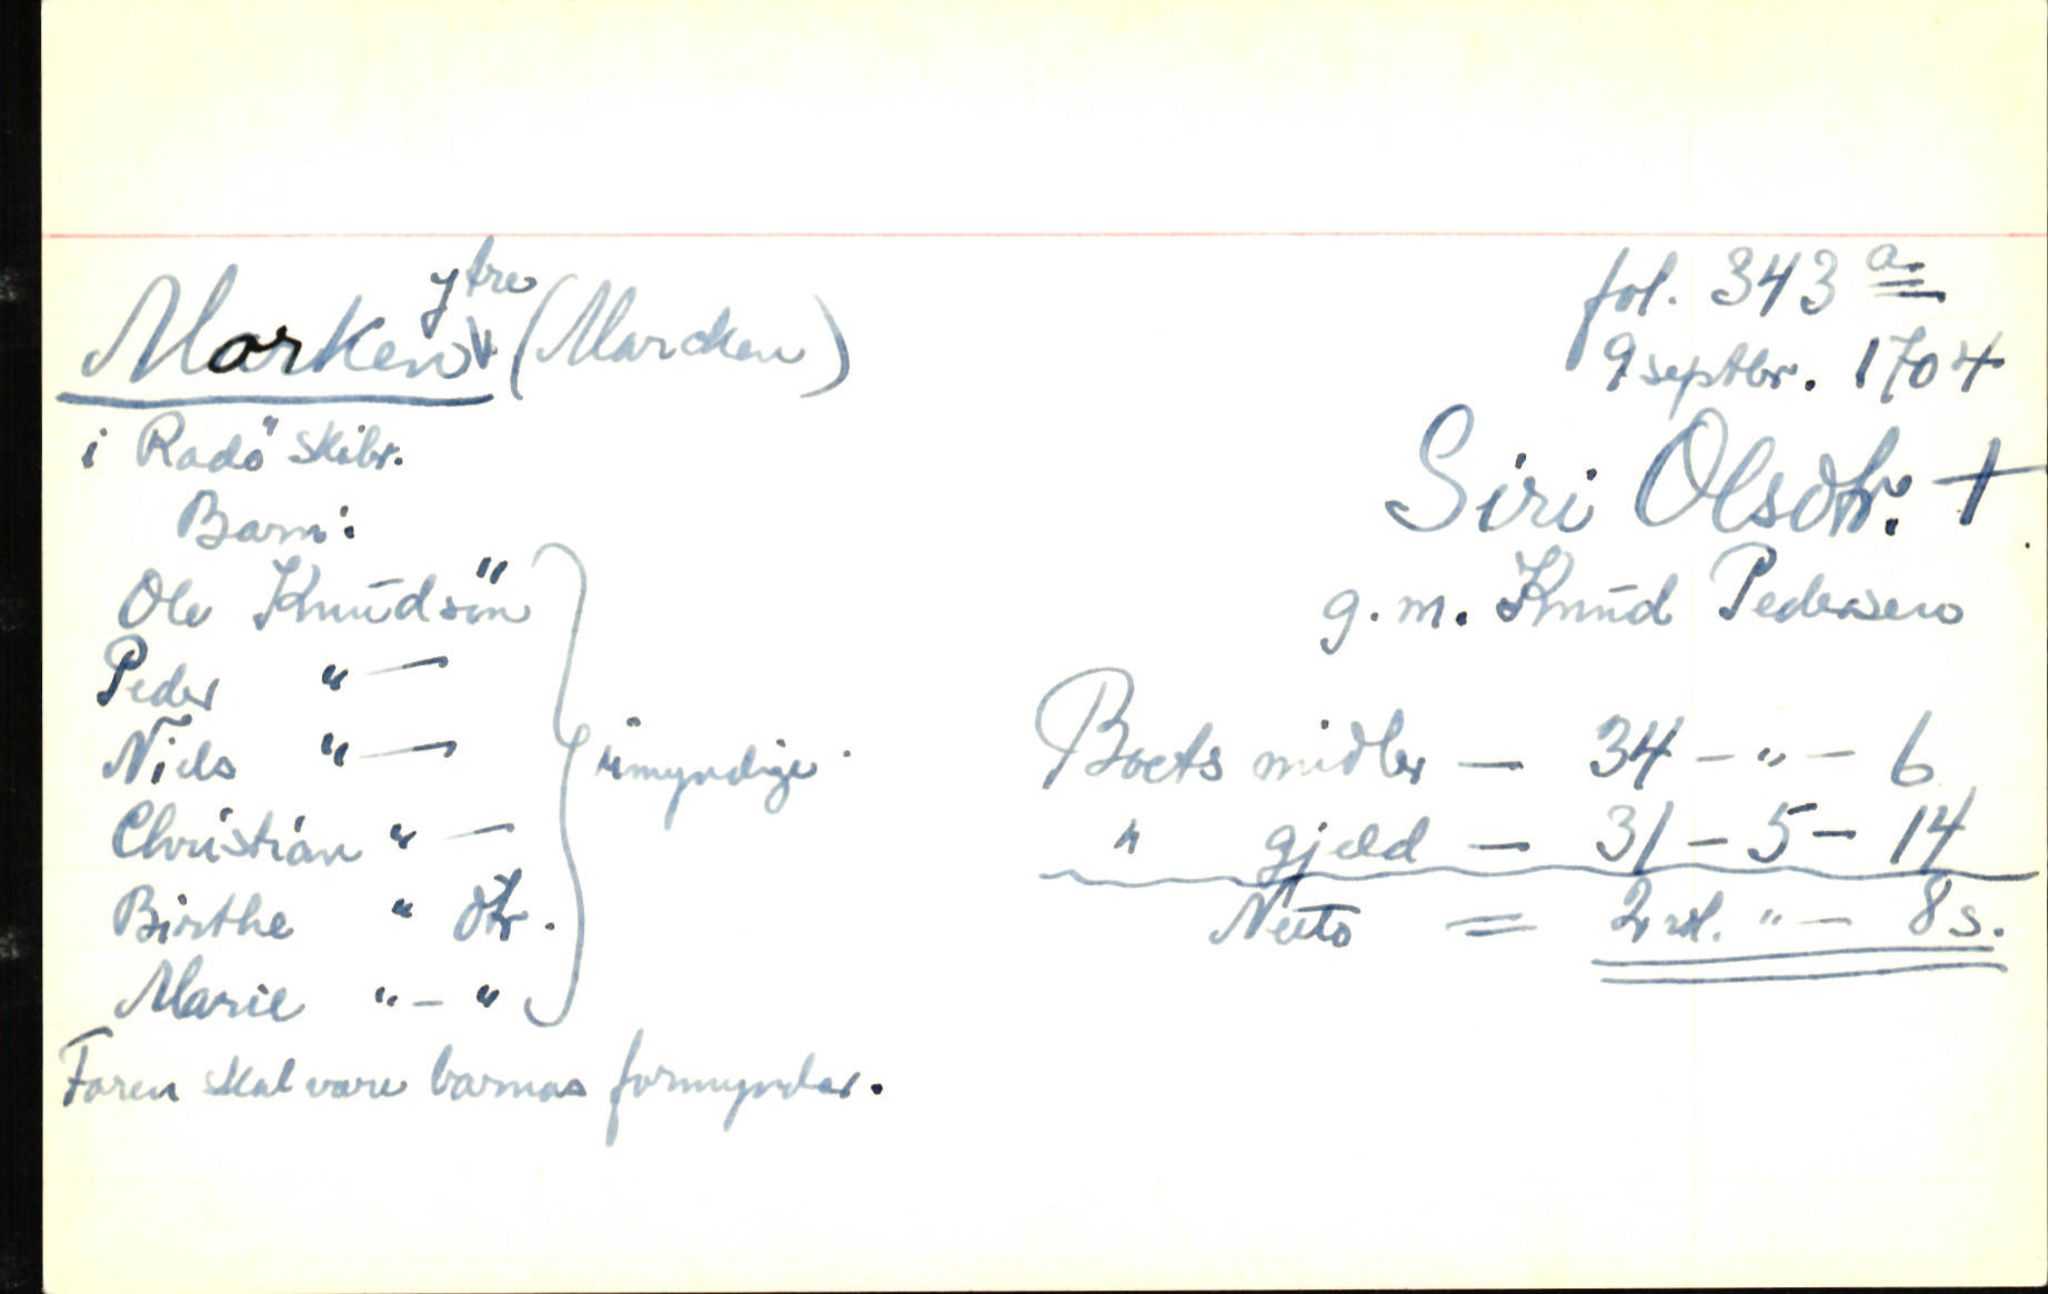 Marken ytre (Marcken)
i Radö skibr.
Barn:
Ole Knudsön
Peder " —
Niels " —
Christian " —
Birthe " dtr.
Marie " – "
umyndige
Faren skal være barnas formynder.
fol. 343 a
9 septbr. 1704
Siri Olsdtr. +
g. m. Knud Pedersen
Boets midler — 34 – " – 6
" gjeld — 31 – 5 – 14
Netto = 2 rd. " – 8 s.